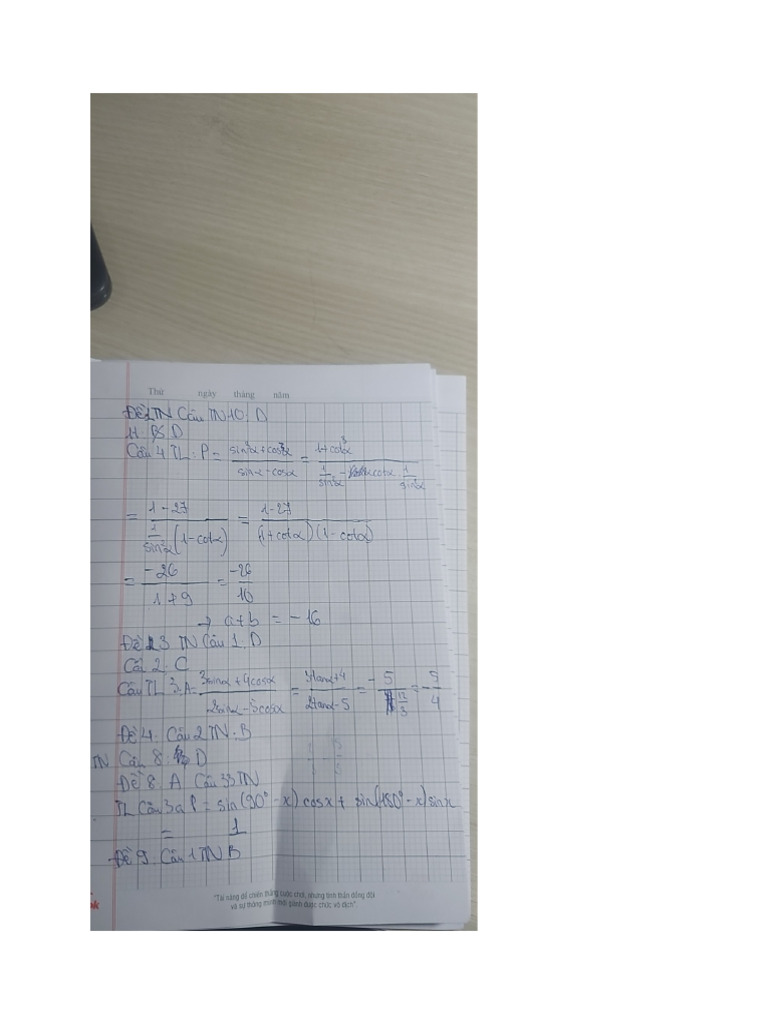 Thứ ngày tháng năm
Đề 2 TN Câu TN 10: D
11: D
Câu 4 TL: P = (sin³α + cos³α)/(sinα - cosα) = (1 + cot³α)/(1/sin²α - cotα 1/sin²α)
= (1 - 27)/(1/sin²α (1 - cotα)) = (1 - 27)/((1 + cotα)(1 - cotα))
= -26/(1 + 9) = -26/10
→ a + b = -16
Đề 3 TN Câu 1: D
Câu 2: C
Câu TL 3: A = (3sinα + 4cosα)/(2sinα - 5cosα) = (3tanα + 4)/(2tanα - 5) = = -5/4
Đề 4: Câu 2 TN: B
TN Câu 8: D
Đề 8: A Câu 33 TN
TL Câu 3a P = sin(90° - x) cosx + sin(180° - x) sinx
= 1
Đề 9: Câu 1 TN B
"Tài năng để chiến thắng cuộc chơi, nhưng tinh thần đồng đội
và sự thông minh mới giành được chức vô địch".